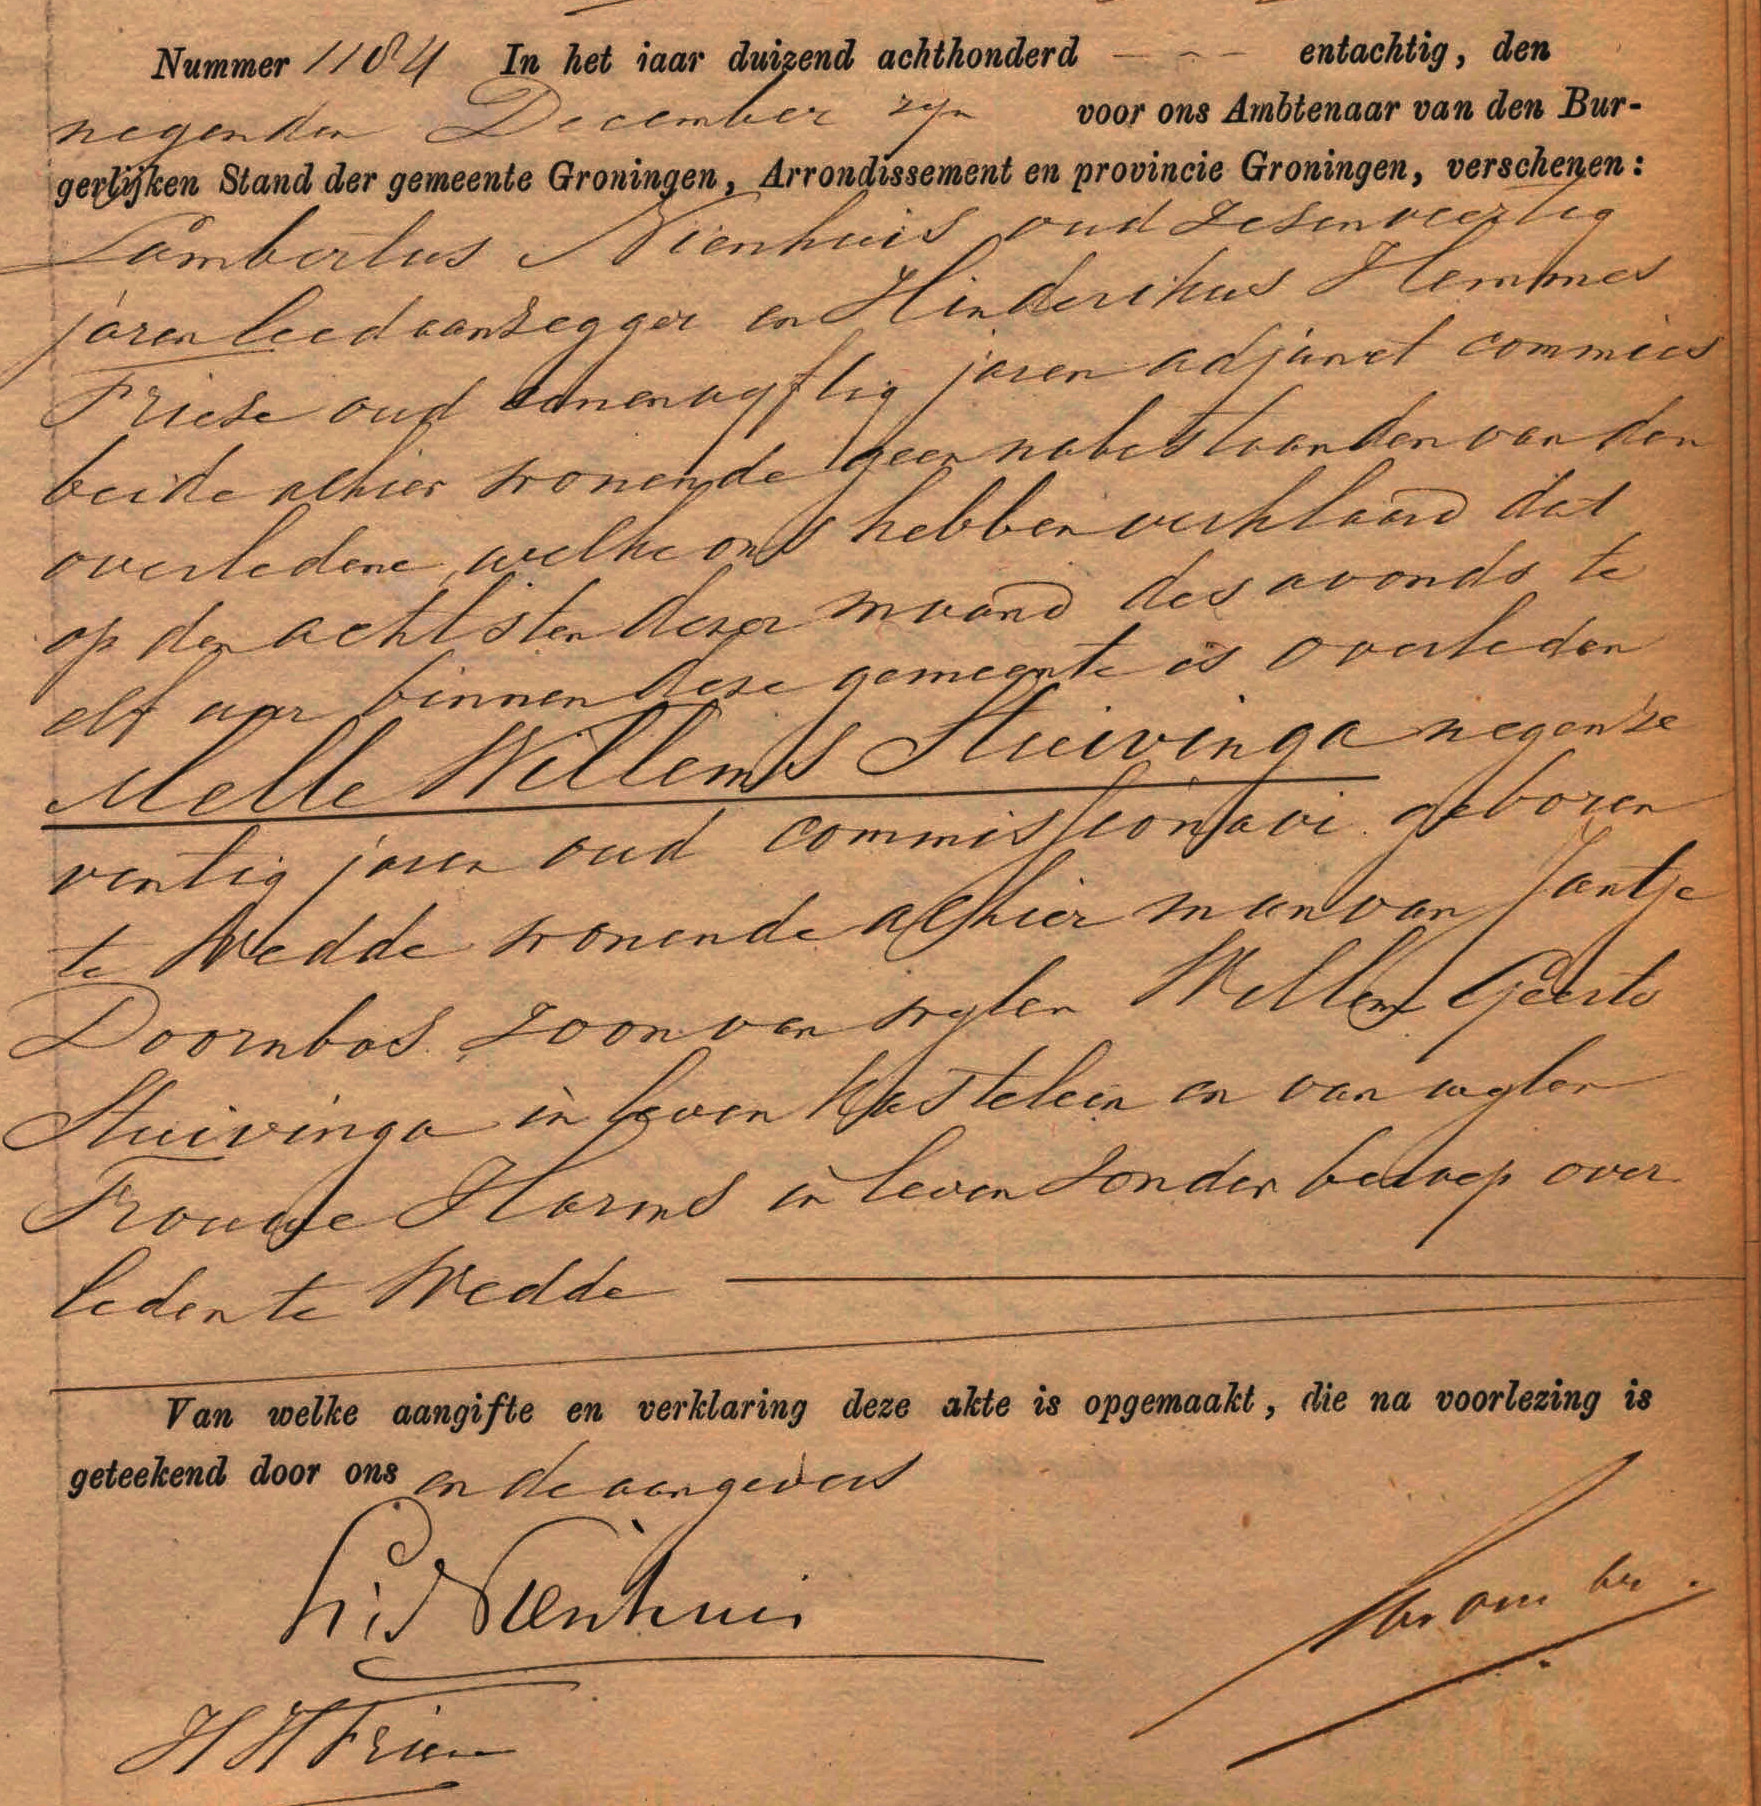 Nummer 1184 In het iaar duizend achthonderd — - — entachtig, den
negenden December zyn voor ons Ambtenaar van den Bur-
gerlijken Stand der gemeente Groningen, Arrondissement en provincie Groningen, verschenen:
Lambertus Nienhuis oud zesenveertig
jaren leedaanzegger en Hinderikus Hemmes
Frieze oud eenenvyftig jaren adjunct commies
beide alhier wonende geen nabestaanden van den
overledene, welke ons hebben verklaard dat
op den achtsten dezer maand des avonds te
elf uur binnen deze gemeente is overleden
Melle Willems Stuivinga negenze
ventig jaren oud commissionair geboren
te Wedde wonende alhier man van Jantje
Doornbos zoon van wylen Willem Geerts
Stuivinga in leven Kastelein en van wylen
Frouwe Harms in leven zonder beroep over
leden te Wedde
Van welke aangifte en verklaring deze akte is opgemaakt, die na voorlezing is
geteekend door ons en de aangevers
L. Nienhuis
H H Frieze